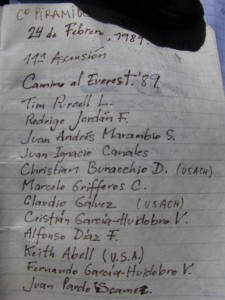 Cº PIRAMI
24 de Febrero, 1989.
11ª Ascensión
Camino al Everest.'89.
Tim Purcell L.
Rodrigo Jordán F.
Juan Andrés Marambio S.
Juan Ignacio Canales
Christian Buracchio D. (USACH)
Marcelo Grifferos C.
Claudio Gálvez (USACH)
Cristián García-Huidobro V.
Alfonso Díaz F.
Keith Abell (U.S.A.)
Fernando García-Huidobro V.
Juan Pardo